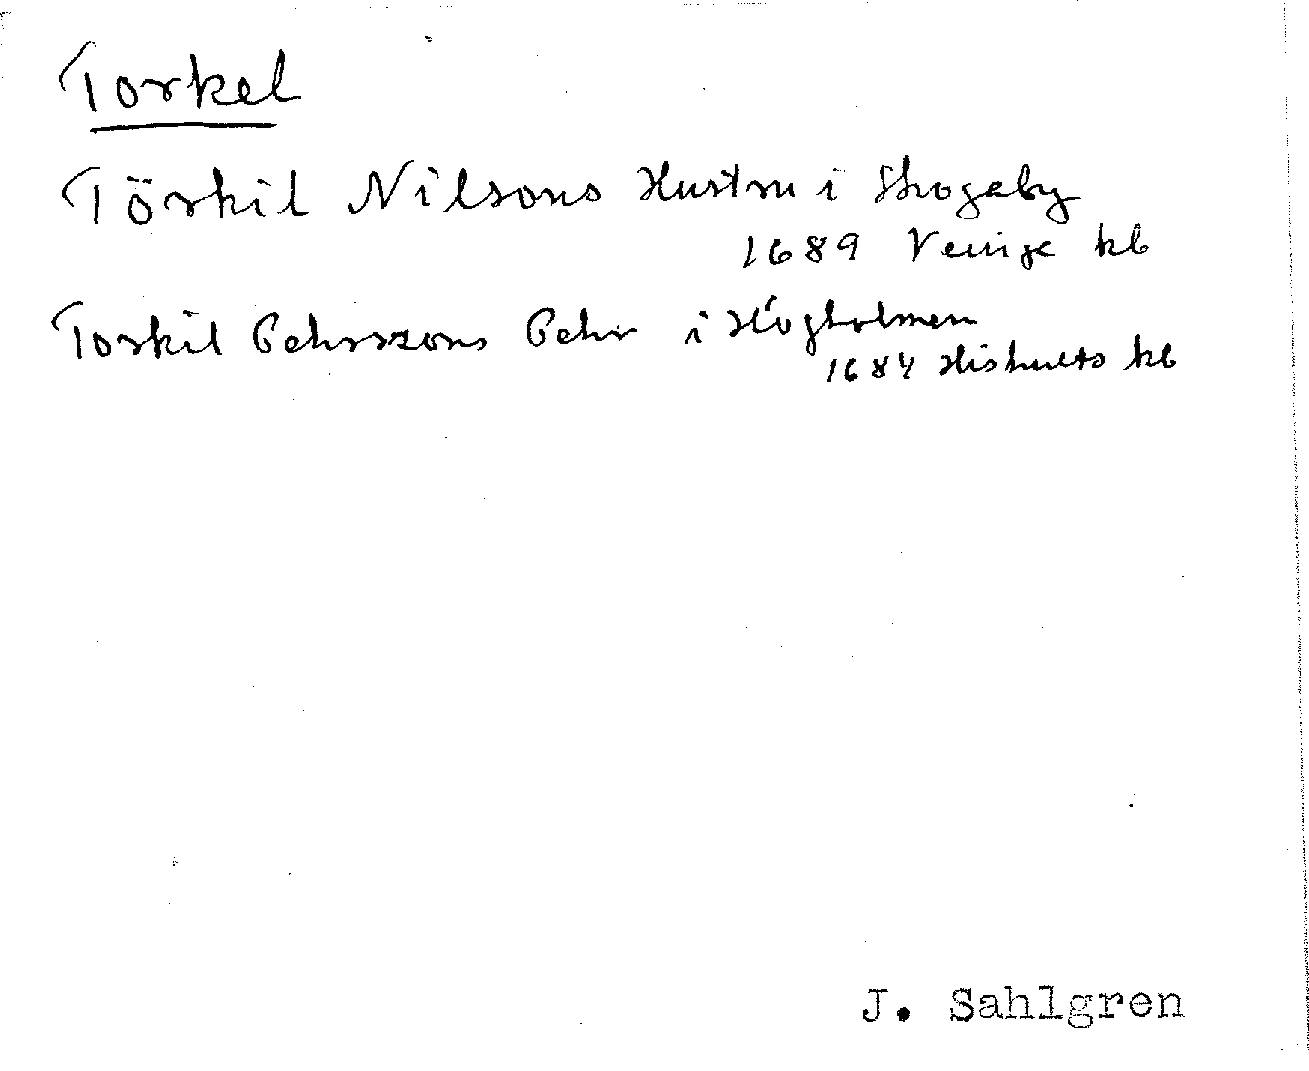 Torkel
Törkil Nilsons Hustru i Skogaby
1689 Veinge kb
Torkil Pehrszons Pehr i Högholmen
1684 Hishults kb
J. Sahlgren